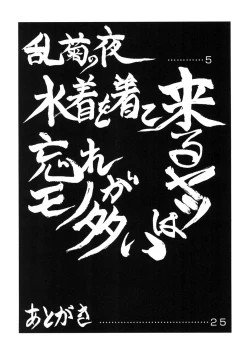 乱菊の夜 …………5
水着を着て来るヤツは
忘れモノが多い
あとがき …………………………25